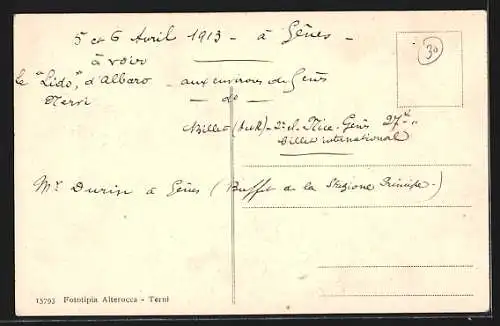 5 et 6 Avril 1913 - à Gênes -
à voir
Le "Lido" d'Albaro - aux environs de Gênes
Nervi - do -
Billet (A&R) - Nice - Gênes 27
billet international
Mr à Gênes (Buffet de la Stazione Principe -)
30
15793 Fototipia Alterocca - Terni